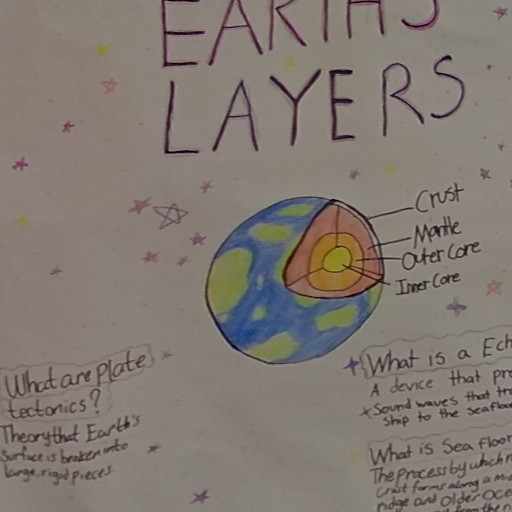 EARTH'S
LAYERS
Crust
Mantle
Outer Core
Inner Core
What are plate
tectonics?
Theory that Earth's
surface is broken into
large, rigid pieces
What is a Ech
A device that pro
Sound waves that tra
ship to the seafloo
What is Sea floor
The process by which n
crust forms along a m
ridge and older oce
from the